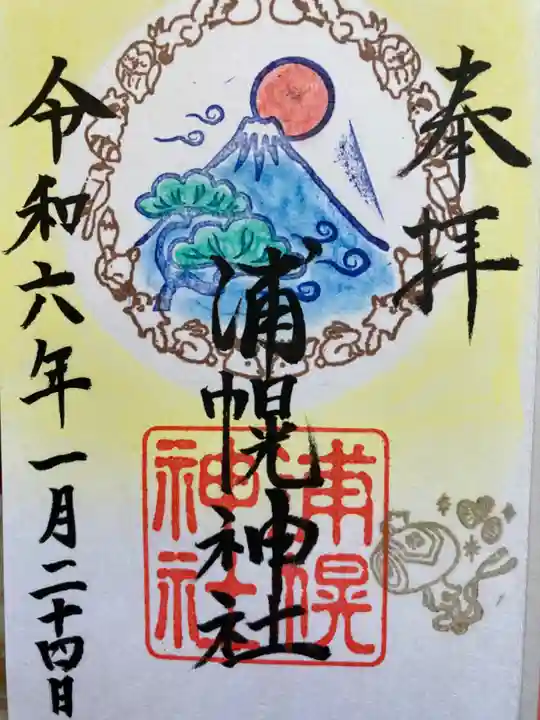 奉拝
浦幌神社
浦幌
神社
令和六年一月二十四日